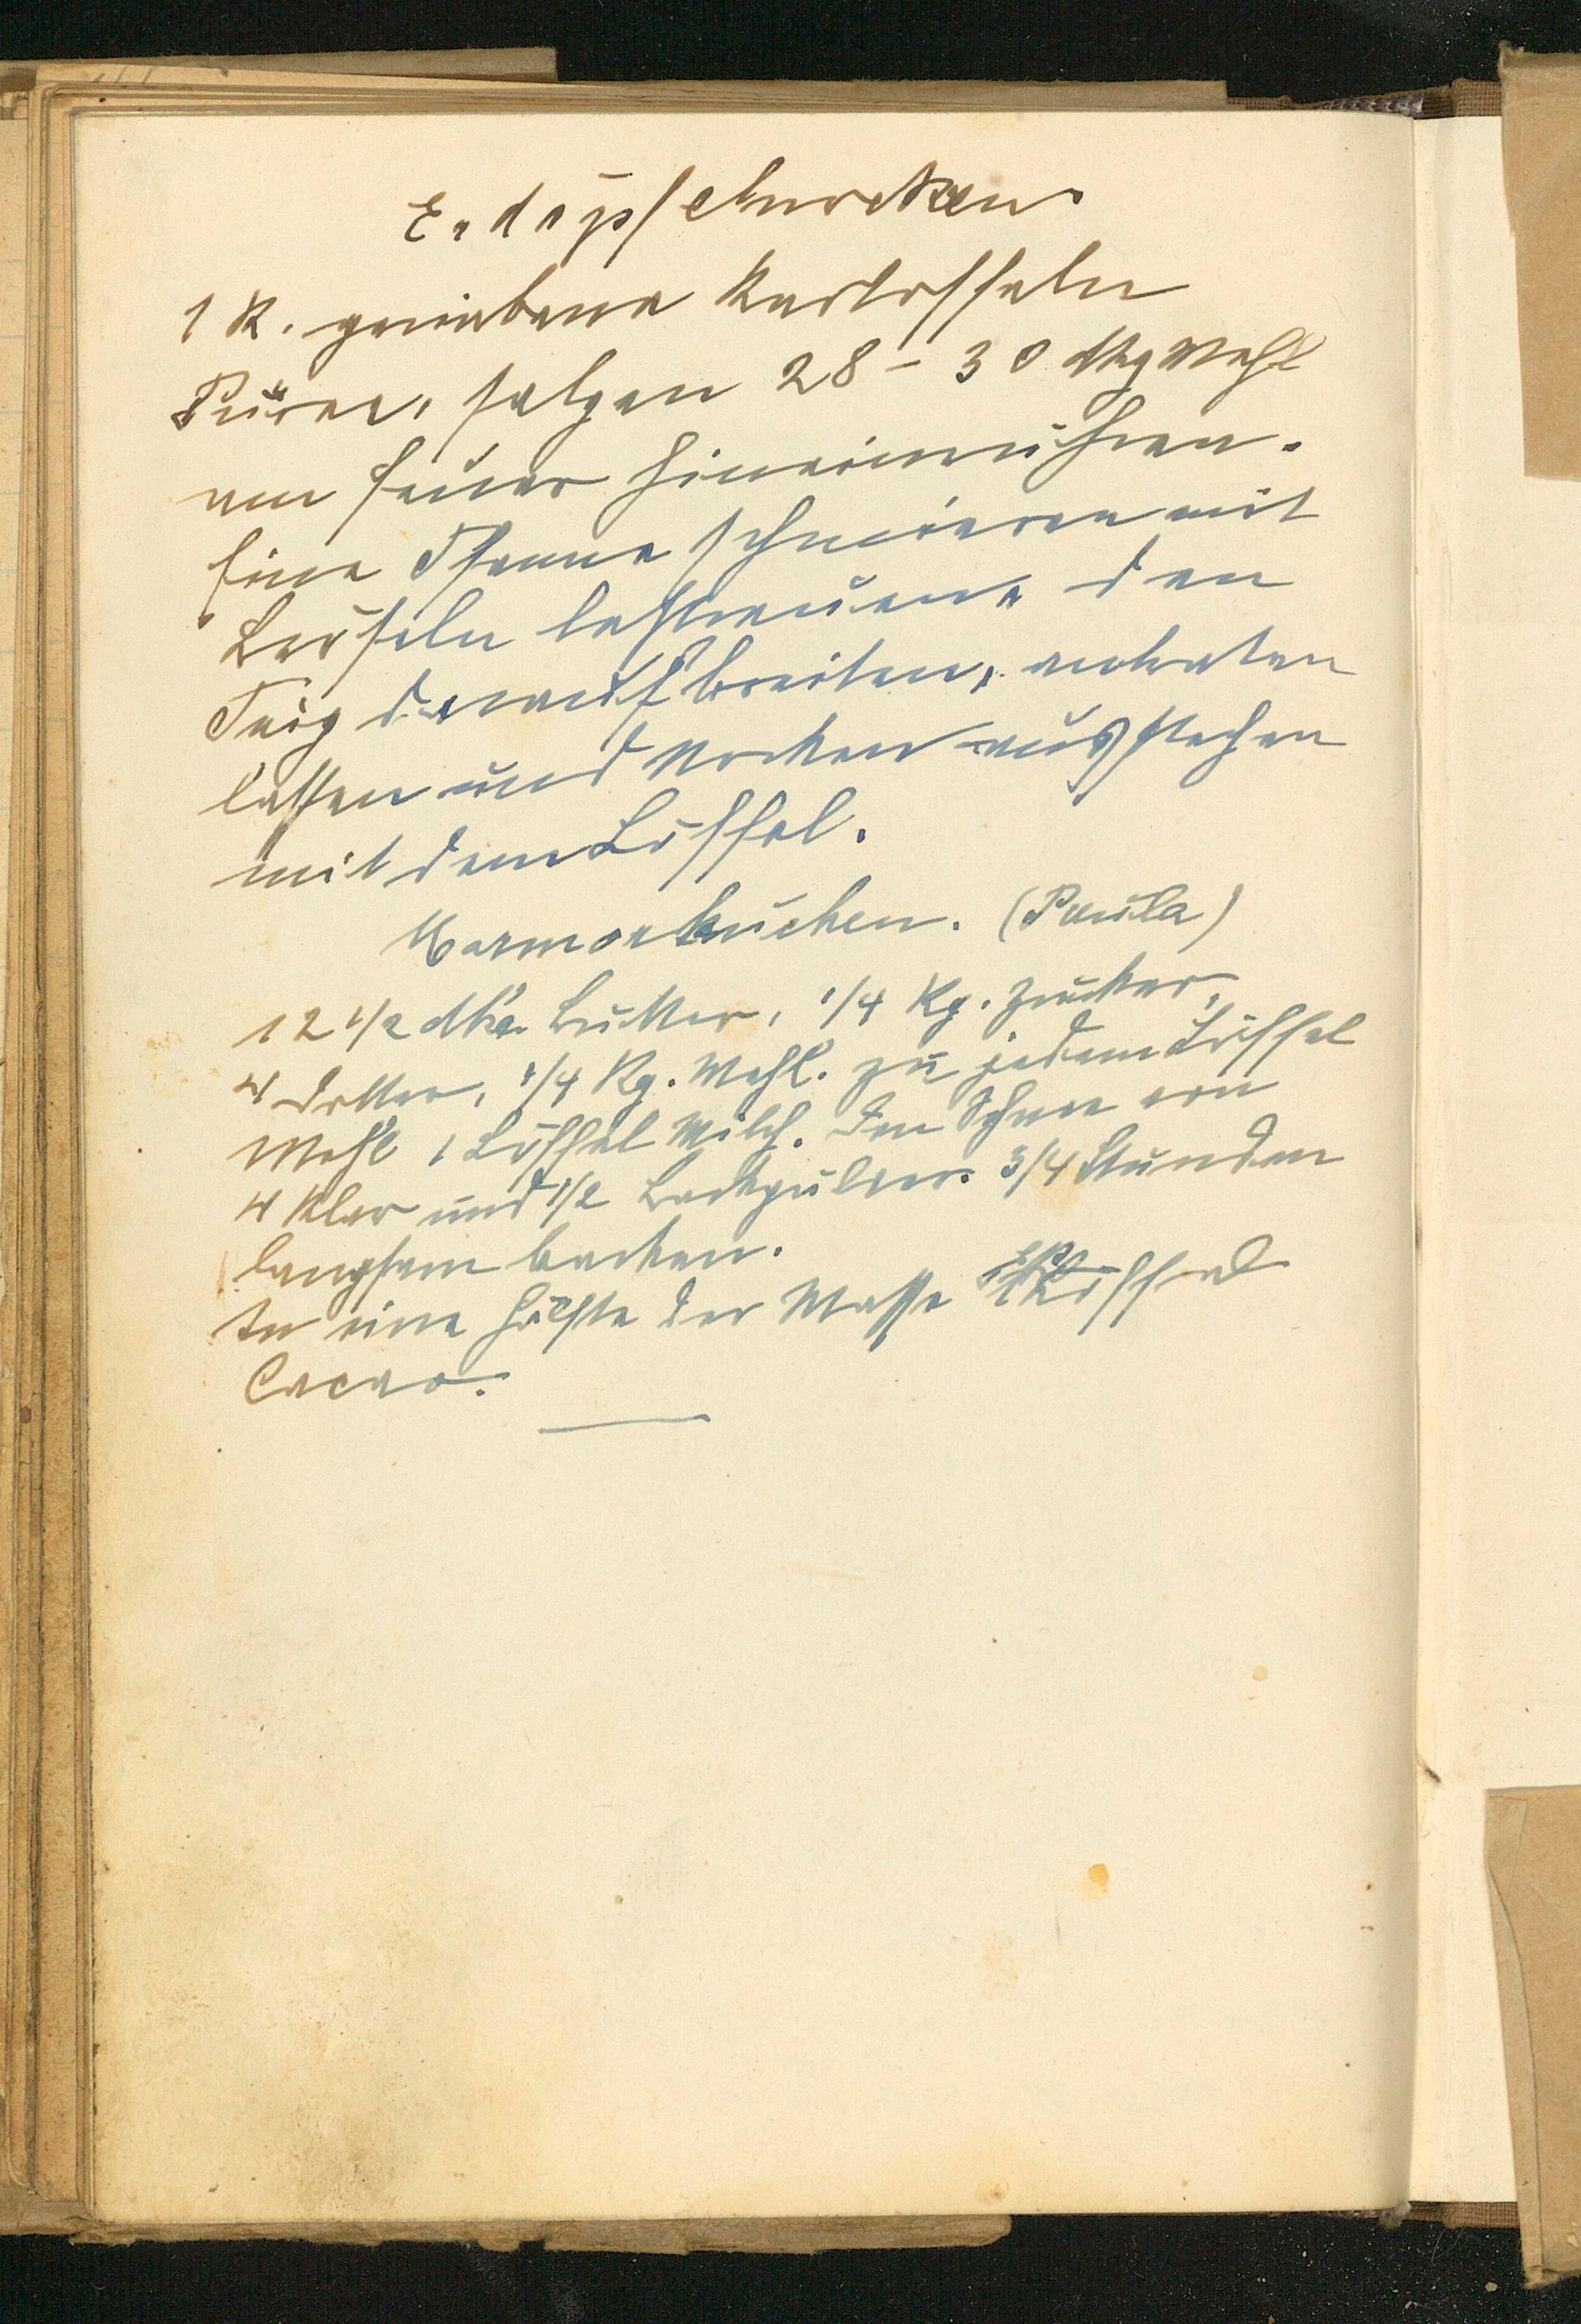 Erdäpfelnocken
1 K. geriebene Kartoffeln
Püree, salzen 28 - 30 dkg Mehl
am Feuer hineinrühren.
Eine Pfanne schmieren mit
Bröseln bestreuen, den
Teig darauf breiten, anbraten
lassen und Nocken ausstechen
mit dem Löffel.
Marmorkuchen. (Paula)
12 1/2 dka Butter, 1/4 Kg. Zucker,
4 Dotter, 1/4 Kg. Mehl. zu jedem Löffel
Mehl 1 Löffel Milch. Den Schnee von
4 Klar und 1/2 Backpulver. 3/4 Stunden
langsam backen.
In eine Hälfte der Masse Löffel
Cacao.